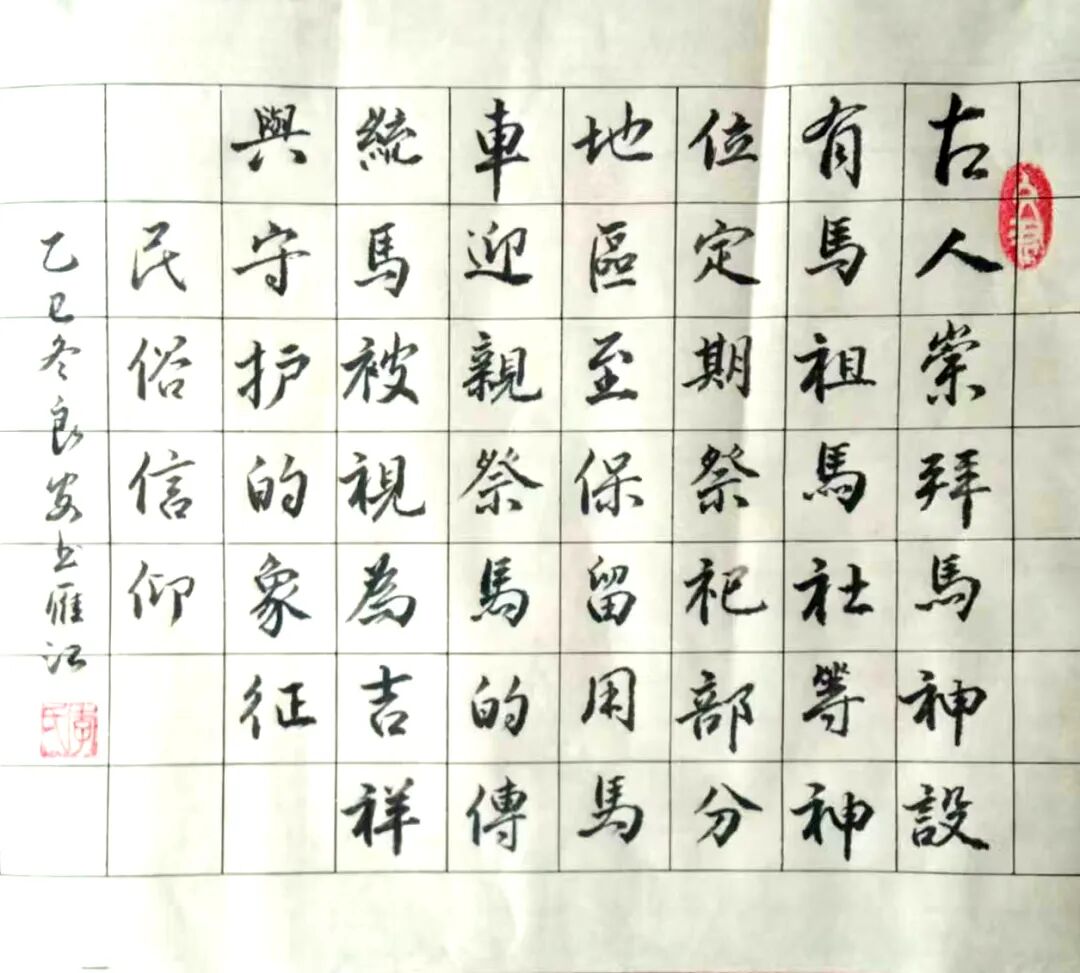 古人崇拜馬神設
有馬祖馬社等神
位定期祭祀部分
地區至保留用馬
車迎親祭馬的傳
統馬被視為吉祥
與守护的象征
民俗信仰
乙巳冬良安书雁江
李氏